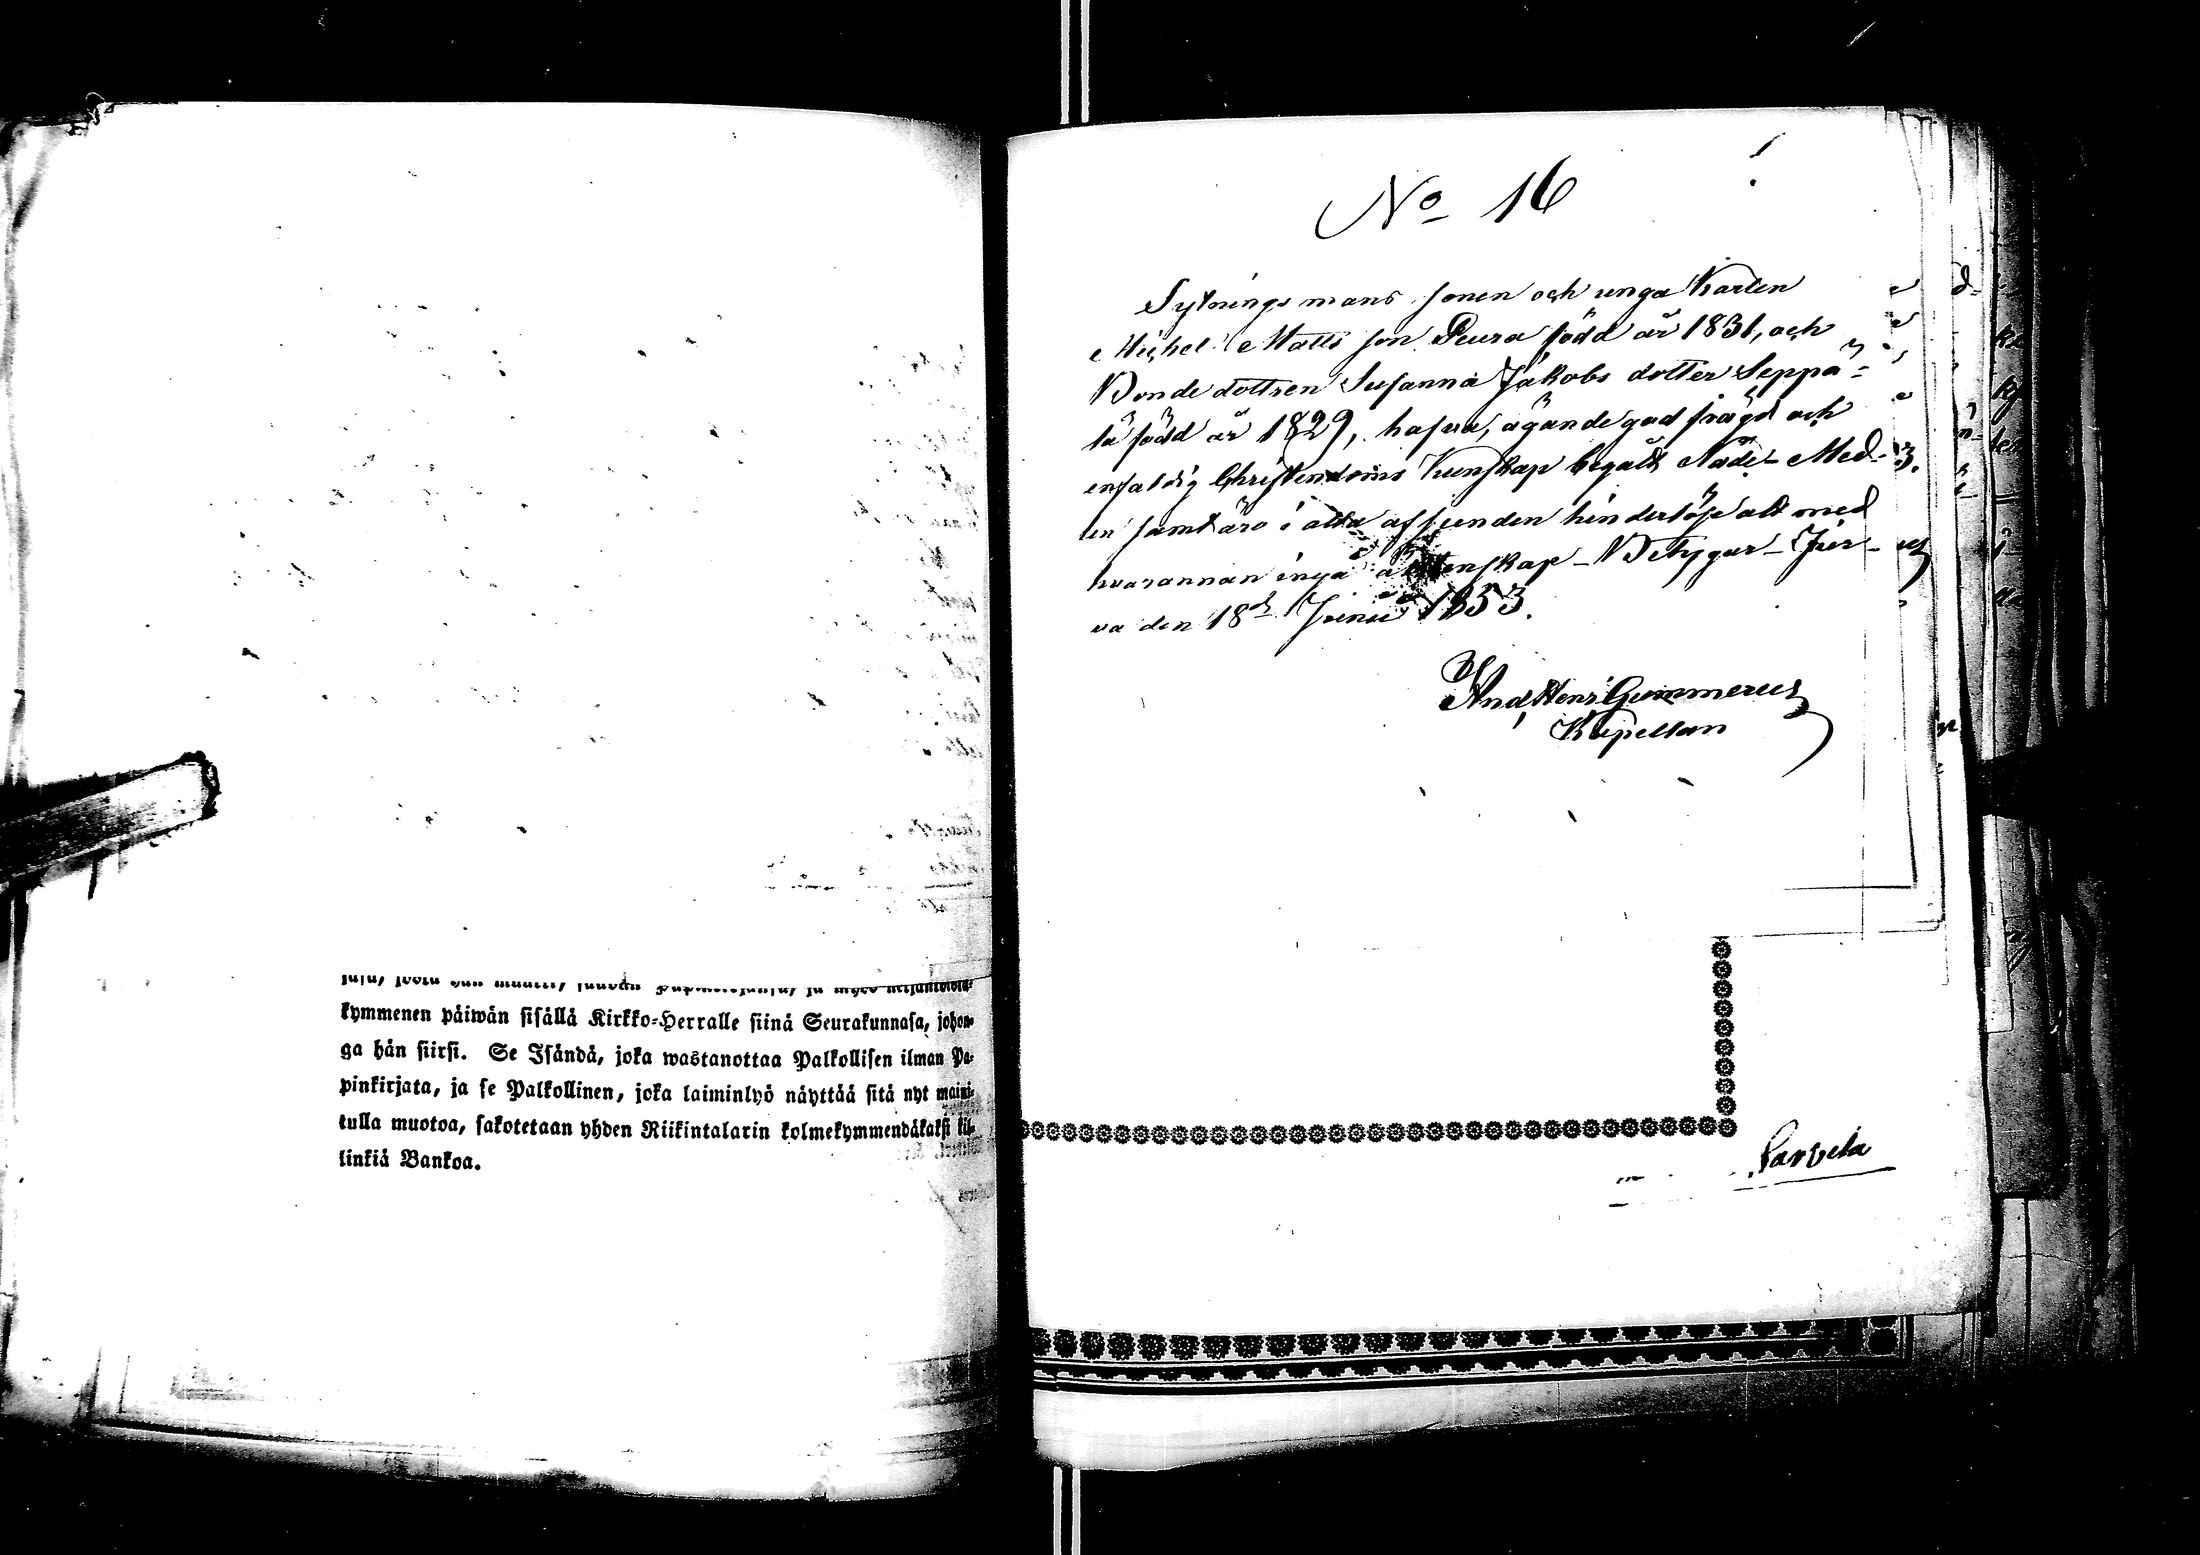 kymmenen päiwän sisällä Kirkko-Herralle siinä Seurakunnasa, johon-
ga hän siirsi. Se Isändä, joka wastanottaa Palkollisen ilman Pa-
pinkirjata, ja se Palkollinen, joka laiminlyö näyttää sitä nyt maini-
tulla muotoa, sakotetaan yhden Riikintalarin kolmekymmendäkaksi kil-
linkiä Bankoa.
No 16
Sytnings mans sonen och unga Karlen
Michel Matts son Peura född år 1831, och
Bonde dottren Susanna Jakobs dotter Seppä-
lä född år 1829, hafva, ägande god frägd och
enfaldig Christendoms Kunskap begått Nåde-Med-
len samt äro i alla afseenden hinderlöse att med
hvarannan ingå äktenskap - Betygar - Jur-
va den 18d Junii 1853.
And Henr Gummerus
Kapellan
Sarvela